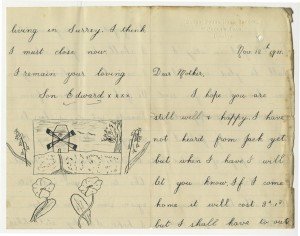 living in Surrey. I think
I must close now
I remain your loving
Son Edward x x x x
Nov. 12th 1911.
Dear Mother,
I hope you are
still well & happy. I have
not heard from Jack yet
but when I have I will
let you know. If I come
home it will cost 3s 1d
but I shall have to